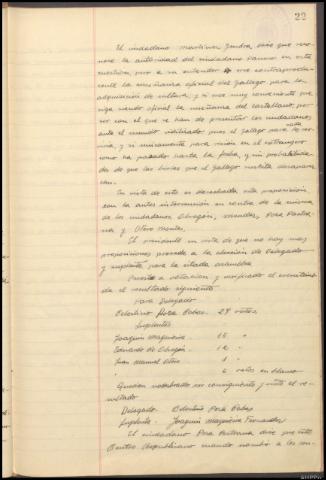 22
El ciudadano Martínez Jambra, dice que reco-
noce la autoridad del ciudadano Ramón en esta
materia, pero a su entender cree contraprodu-
cente la enseñanza oficial del gallego para la
adquisición de cultura, y si es muy conveniente que
siga siendo oficial la enseñanza del castellano, por
ser con el que se han de presentar los ciudadanos
ante el mundo civilizado pues el gallego para nada
servia, y si unicamente para risión en el extranjero
como ha pasado hasta la fecha, y sin probabilida-
des de que los libros que el gallego escriba
En vista de esto es desechada esta proposición
con la antes intervención en contra de la misma
de los ciudadanos Obregón, Poza Pastra-
na y Otero Mentes.
El presidente en vista de que no hay mas
proposiciones procede a la elección de Delegado
y suplente para la citada asamblea
Puesto a votacion y verificado el escrutinio
da el resultado siguiente
Para Delegado
Celestino Poza Cobas 27 votos.
Suplentes
Joaquín Maquieira 15 "
Eduardo de Obregón 12 "
Juan Manuel Otero 1 "
6 votos en blanco
Quedan nombrados por consiguiente y visto el re-
sultado
Delegado Celestino Poza Cobas
Suplente. Joaquín Maquieira Fernandez
El ciudadano Poza Pastrana dice que este
Centro Republicano cuando nombró a los con-